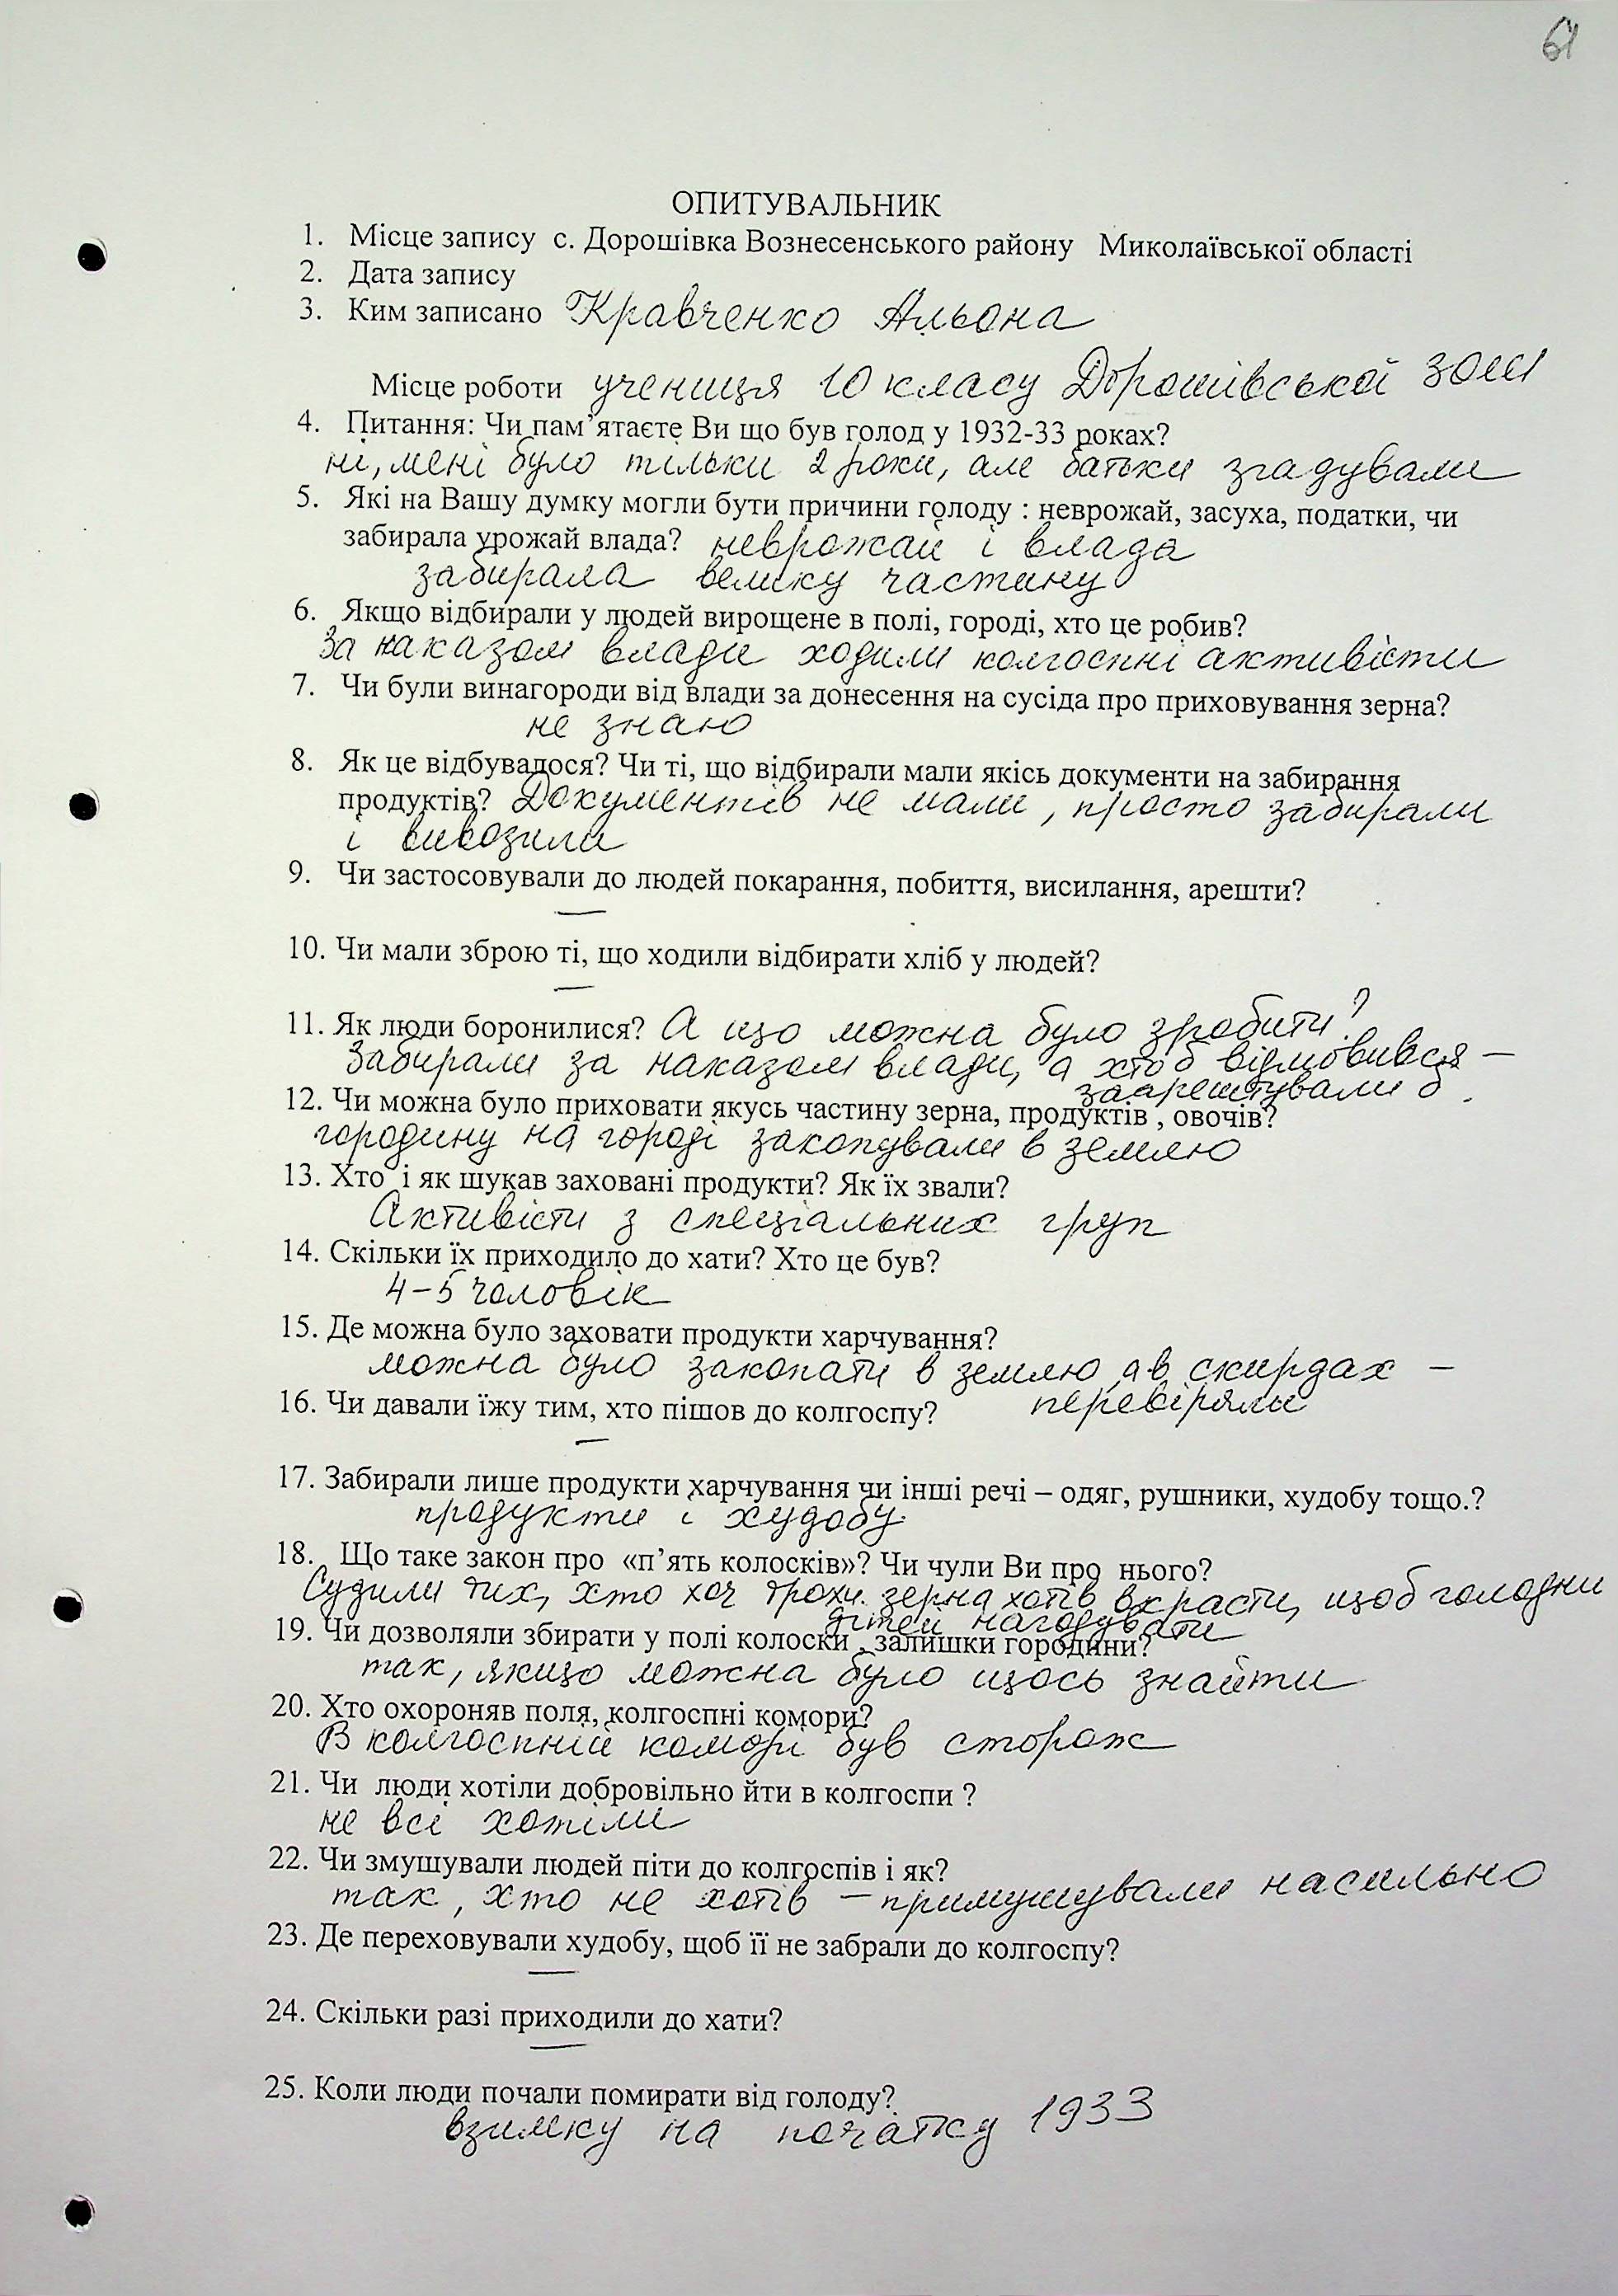 61
ОПИТУВАЛЬНИК
1. Місце запису с. Дорошівка Вознесенського району Миколаївської області
2. Дата запису
3. Ким записано Кравченко Альона
Місце роботи учениця 10 класу Дорошівської ЗОШ
4. Питання: Чи пам’ятаєте Ви що був голод у 1932-33 роках?
ні, мені було тільки 2 роки, але батьки згадували
5. Які на Вашу думку могли бути причини голоду : неврожай, засуха, податки, чи
забирала урожай влада? неврожай і влада
забирала велику частину
6. Якщо відбирали у людей вирощене в полі, городі, хто це робив?
За наказом влади ходили колгоспні активісти
7. Чи були винагороди від влади за донесення на сусіда про приховування зерна?
не знаю
8. Як це відбувалося? Чи ті, що відбирали мали якісь документи на забирання
продуктів? Документів не мали, просто забирали
і вивозили
9. Чи застосовували до людей покарання, побиття, висилання, арешти?
—
10. Чи мали зброю ті, що ходили відбирати хліб у людей?
—
11. Як люди боронилися? А що можна було зробити?
Забирали за наказом влади, а хто б відмовився –
заарештували б.
12. Чи можна було приховати якусь частину зерна, продуктів , овочів?
городину на городі закопували в землю
13. Хто і як шукав заховані продукти? Як їх звали?
Активісти з спеціальних груп
14. Скільки їх приходило до хати? Хто це був?
4-5 чоловік
15. Де можна було заховати продукти харчування?
можна було закопати в землю, а в скирдах –
перевіряли
16. Чи давали їжу тим, хто пішов до колгоспу?
—
17. Забирали лише продукти харчування чи інші речі – одяг, рушники, худобу тощо.?
продукти і худобу.
18. Що таке закон про «п’ять колосків»? Чи чули Ви про нього?
Судили тих, хто хоч трохи зерна хотів вкрасти, щоб голодни
дітей нагодувати
19. Чи дозволяли збирати у полі колоски , залишки городини?
так, якщо можна було щось знайти
20. Хто охороняв поля, колгоспні комори?
В колгоспній коморі був сторож
21. Чи люди хотіли добровільно йти в колгоспи ?
не всі хотіли
22. Чи змушували людей піти до колгоспів і як?
так, хто не хотів – примушували насильно
23. Де переховували худобу, щоб її не забрали до колгоспу?
—
24. Скільки разі приходили до хати?
—
25. Коли люди почали помирати від голоду?
взимку на початку 1933